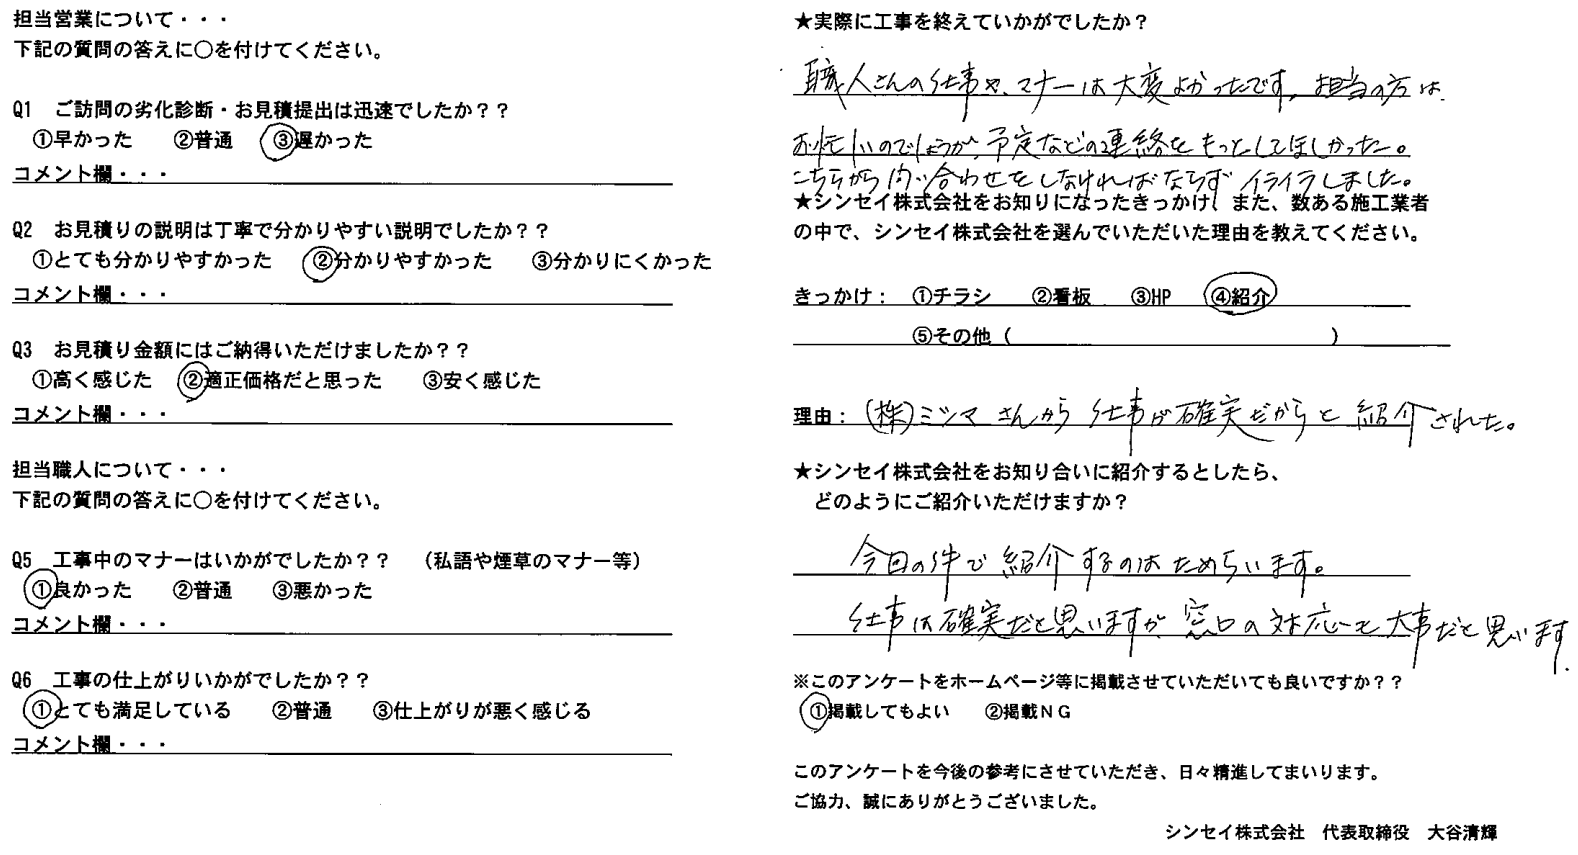 担当営業について・・・
下記の質問の答えに○を付けてください。
Q1 ご訪問の劣化診断・お見積提出は迅速でしたか？？
①早かった ②普通 ③遅かった
コメント欄・・・
Q2 お見積りの説明は丁寧で分かりやすい説明でしたか？？
①とても分かりやすかった ②分かりやすかった ③分かりにくかった
コメント欄・・・
Q3 お見積り金額にはご納得いただけましたか？？
①高く感じた ②適正価格だと思った ③安く感じた
コメント欄・・・
担当職人について・・・
下記の質問の答えに○を付けてください。
Q5 工事中のマナーはいかがでしたか？？ （私語や煙草のマナー等）
①良かった ②普通 ③悪かった
コメント欄・・・
Q6 工事の仕上がりいかがでしたか？？
①とても満足している ②普通 ③仕上がりが悪く感じる
コメント欄・・・
★実際に工事を終えていかがでしたか？
職人さんの仕事や、マナーは大変よかったです。担当の方は、
お忙しいのでしょうが、予定などの連絡をもっとしてほしかった。
こちらから問い合わせをしなければならず イライラしました。
★シンセイ株式会社をお知りになったきっかけ、また、数ある施工業者
の中で、シンセイ株式会社を選んでいただいた理由を教えてください。
きっかけ： ①チラシ ②看板 ③HP ④紹介
⑤その他（ ）
理由：（株）ミツマさんから 仕事が確実だからと 紹介された。
★シンセイ株式会社をお知り合いに紹介するとしたら、
どのようにご紹介いただけますか？
今回の件で 紹介するのはためらいます。
仕事は確実だと思いますが、窓口の対応も大事だと思います.
※このアンケートをホームページ等に掲載させていただいても良いですか？？
①掲載してもよい ②掲載ＮＧ
このアンケートを今後の参考にさせていただき、日々精進してまいります。
ご協力、誠にありがとうございました。
シンセイ株式会社 代表取締役 大谷清輝